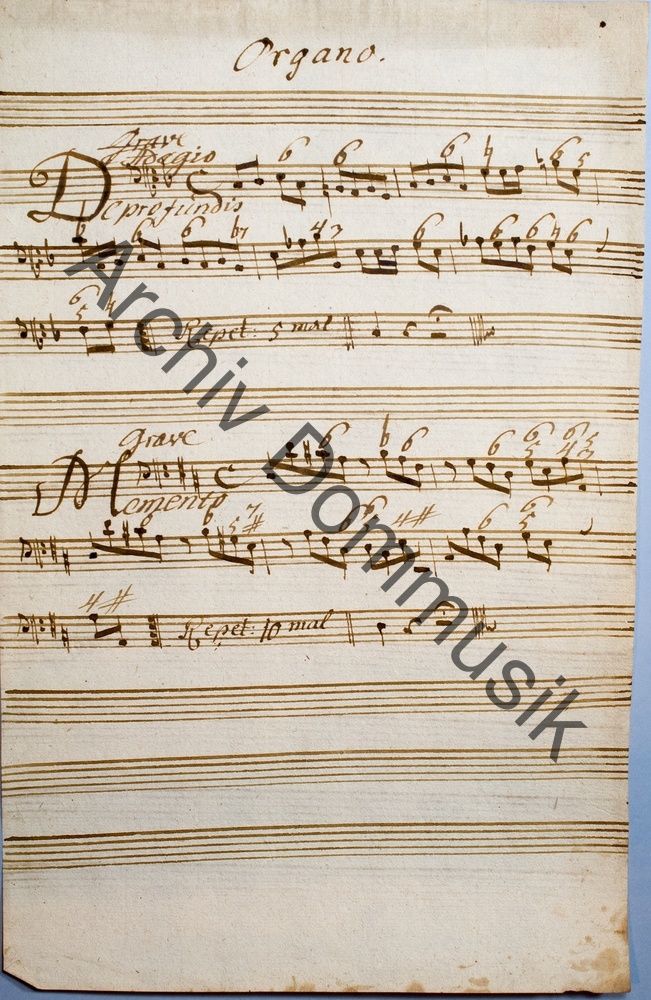 Organo.
Grave
Adagio
De profundis
6 6 6 ♮ 6 5
6 6 6 ♭7 4 3 6 6 6 4 6
6
5 4
Repet: 5 mal
Grave
Memento
6 ♭ 6 6 6 5 6 4 5 3
6 5 7 # 6 6 4 # 6 6 5
4 #
Repet: 10 mal
Archiv Dommusik